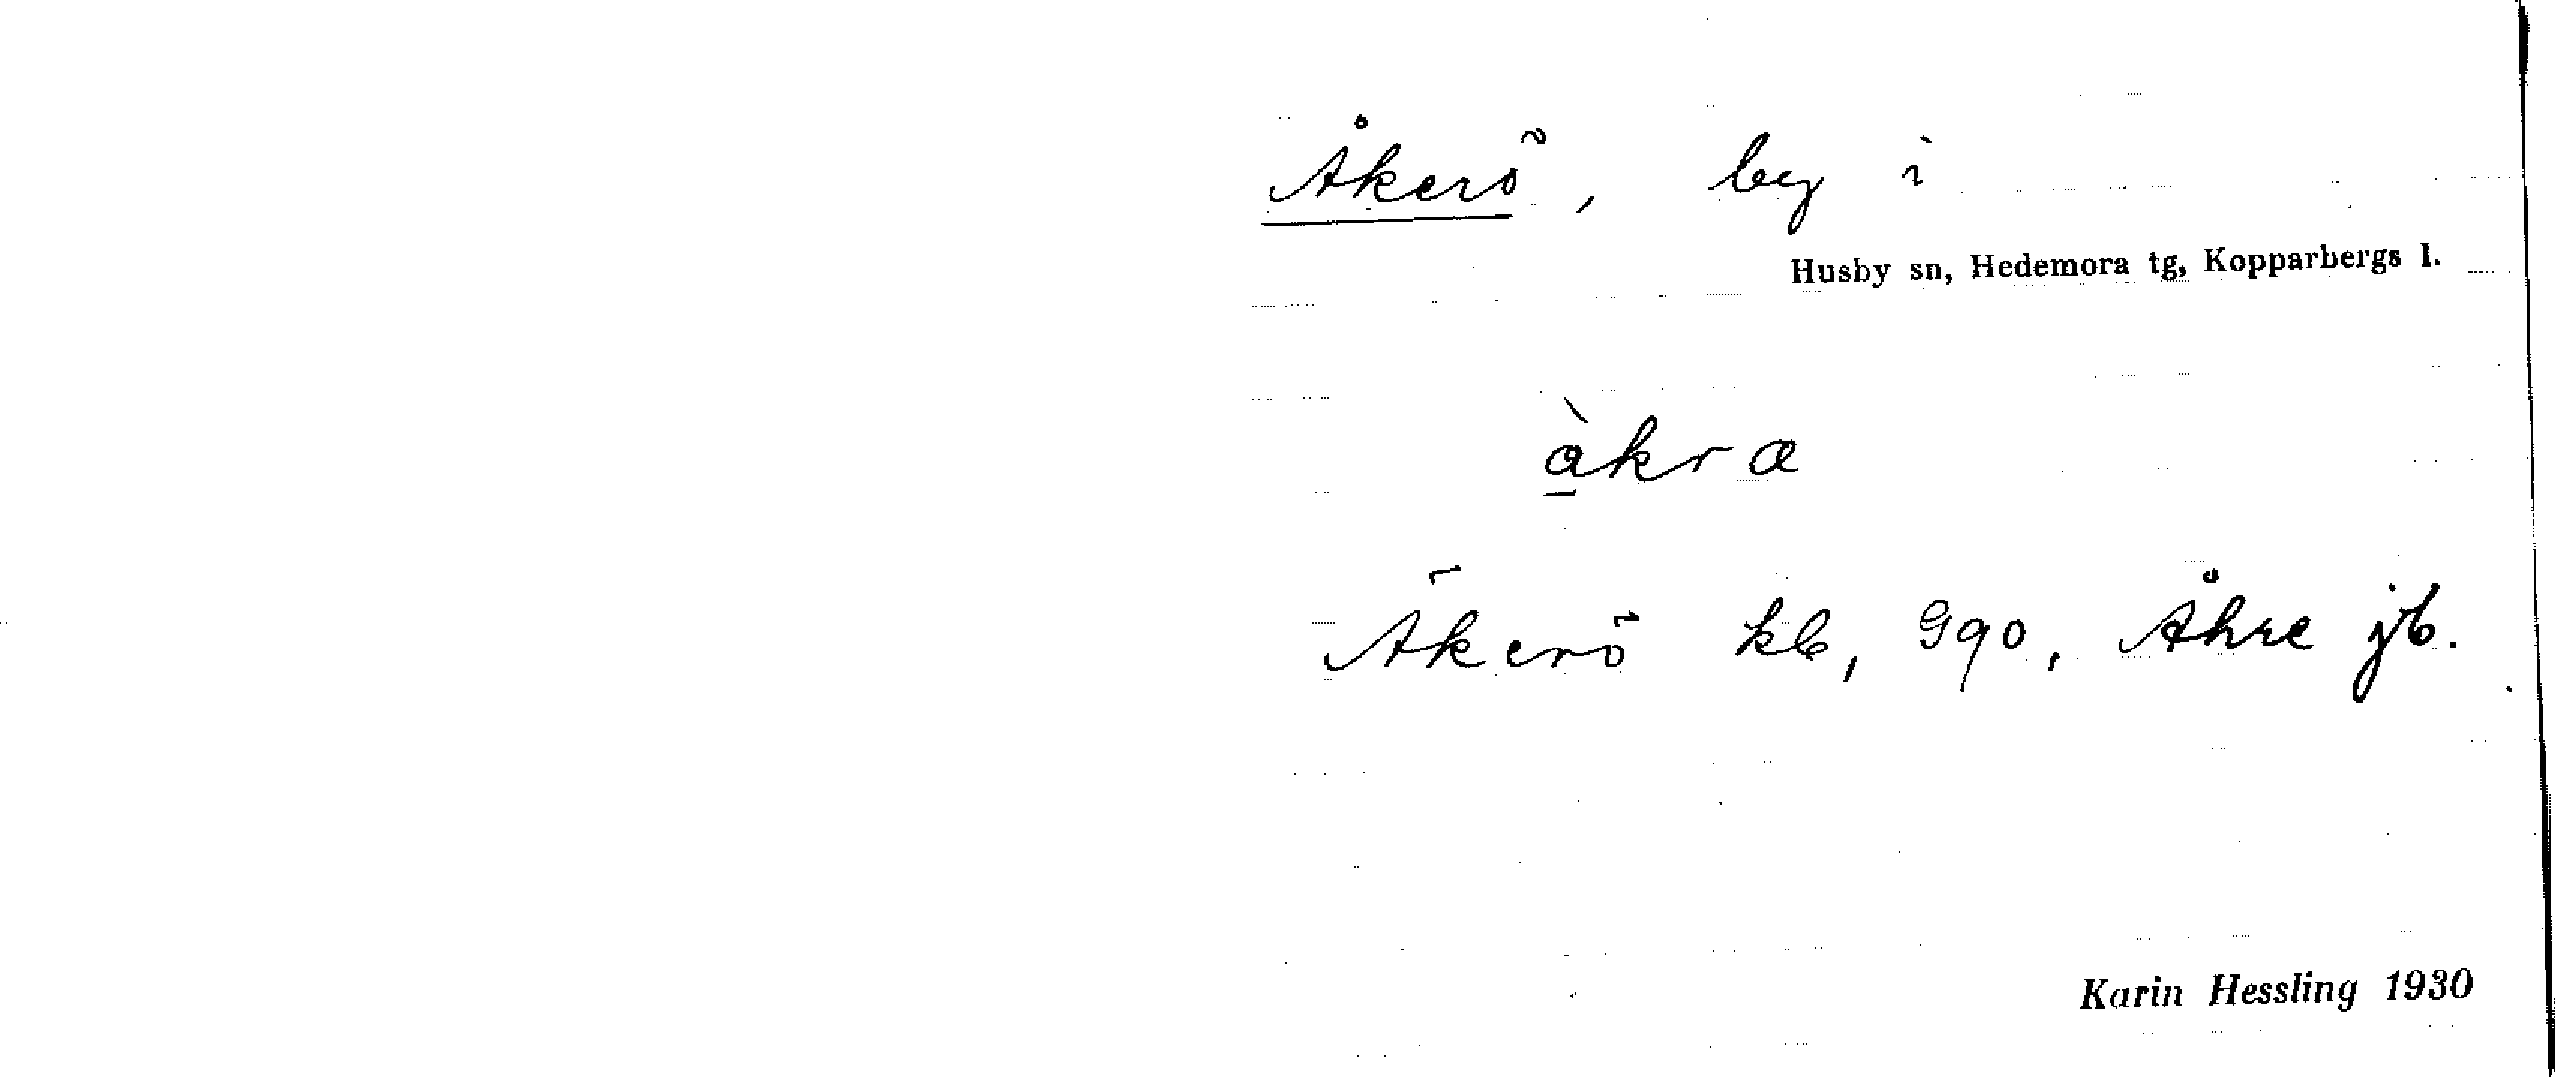 Åkerö, by i
Husby sn, Hedemora tg, Kopparbergs l.
àkra
Åkerö kb, Gqo, Åhre jb.
Karin Hessling 1930